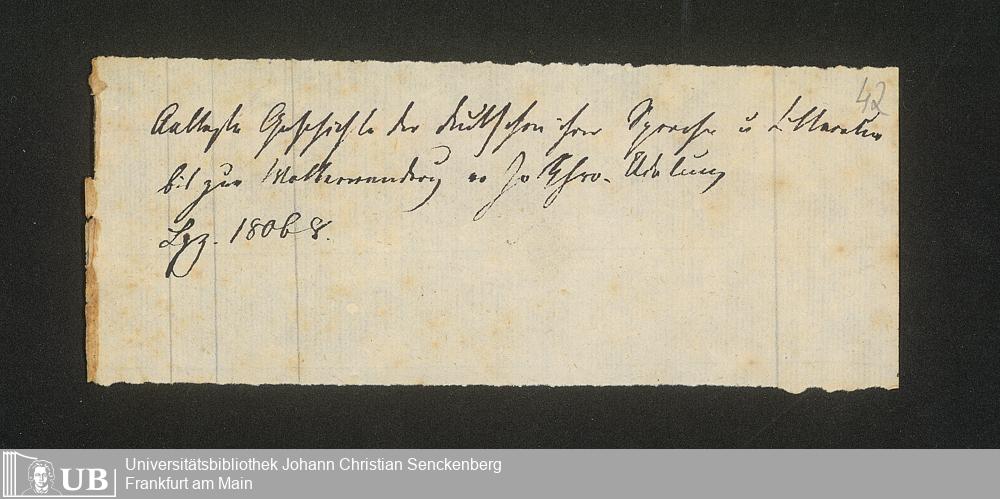 42
Aelteste Geschichte der Deutschen ihrer Sprache u Litteratur
bis zur Völkerwanderung v Jo Chro. Adelung
Lpz. 1806 8.
UB
Universitätsbibliothek Johann Christian Senckenberg
Frankfurt am Main